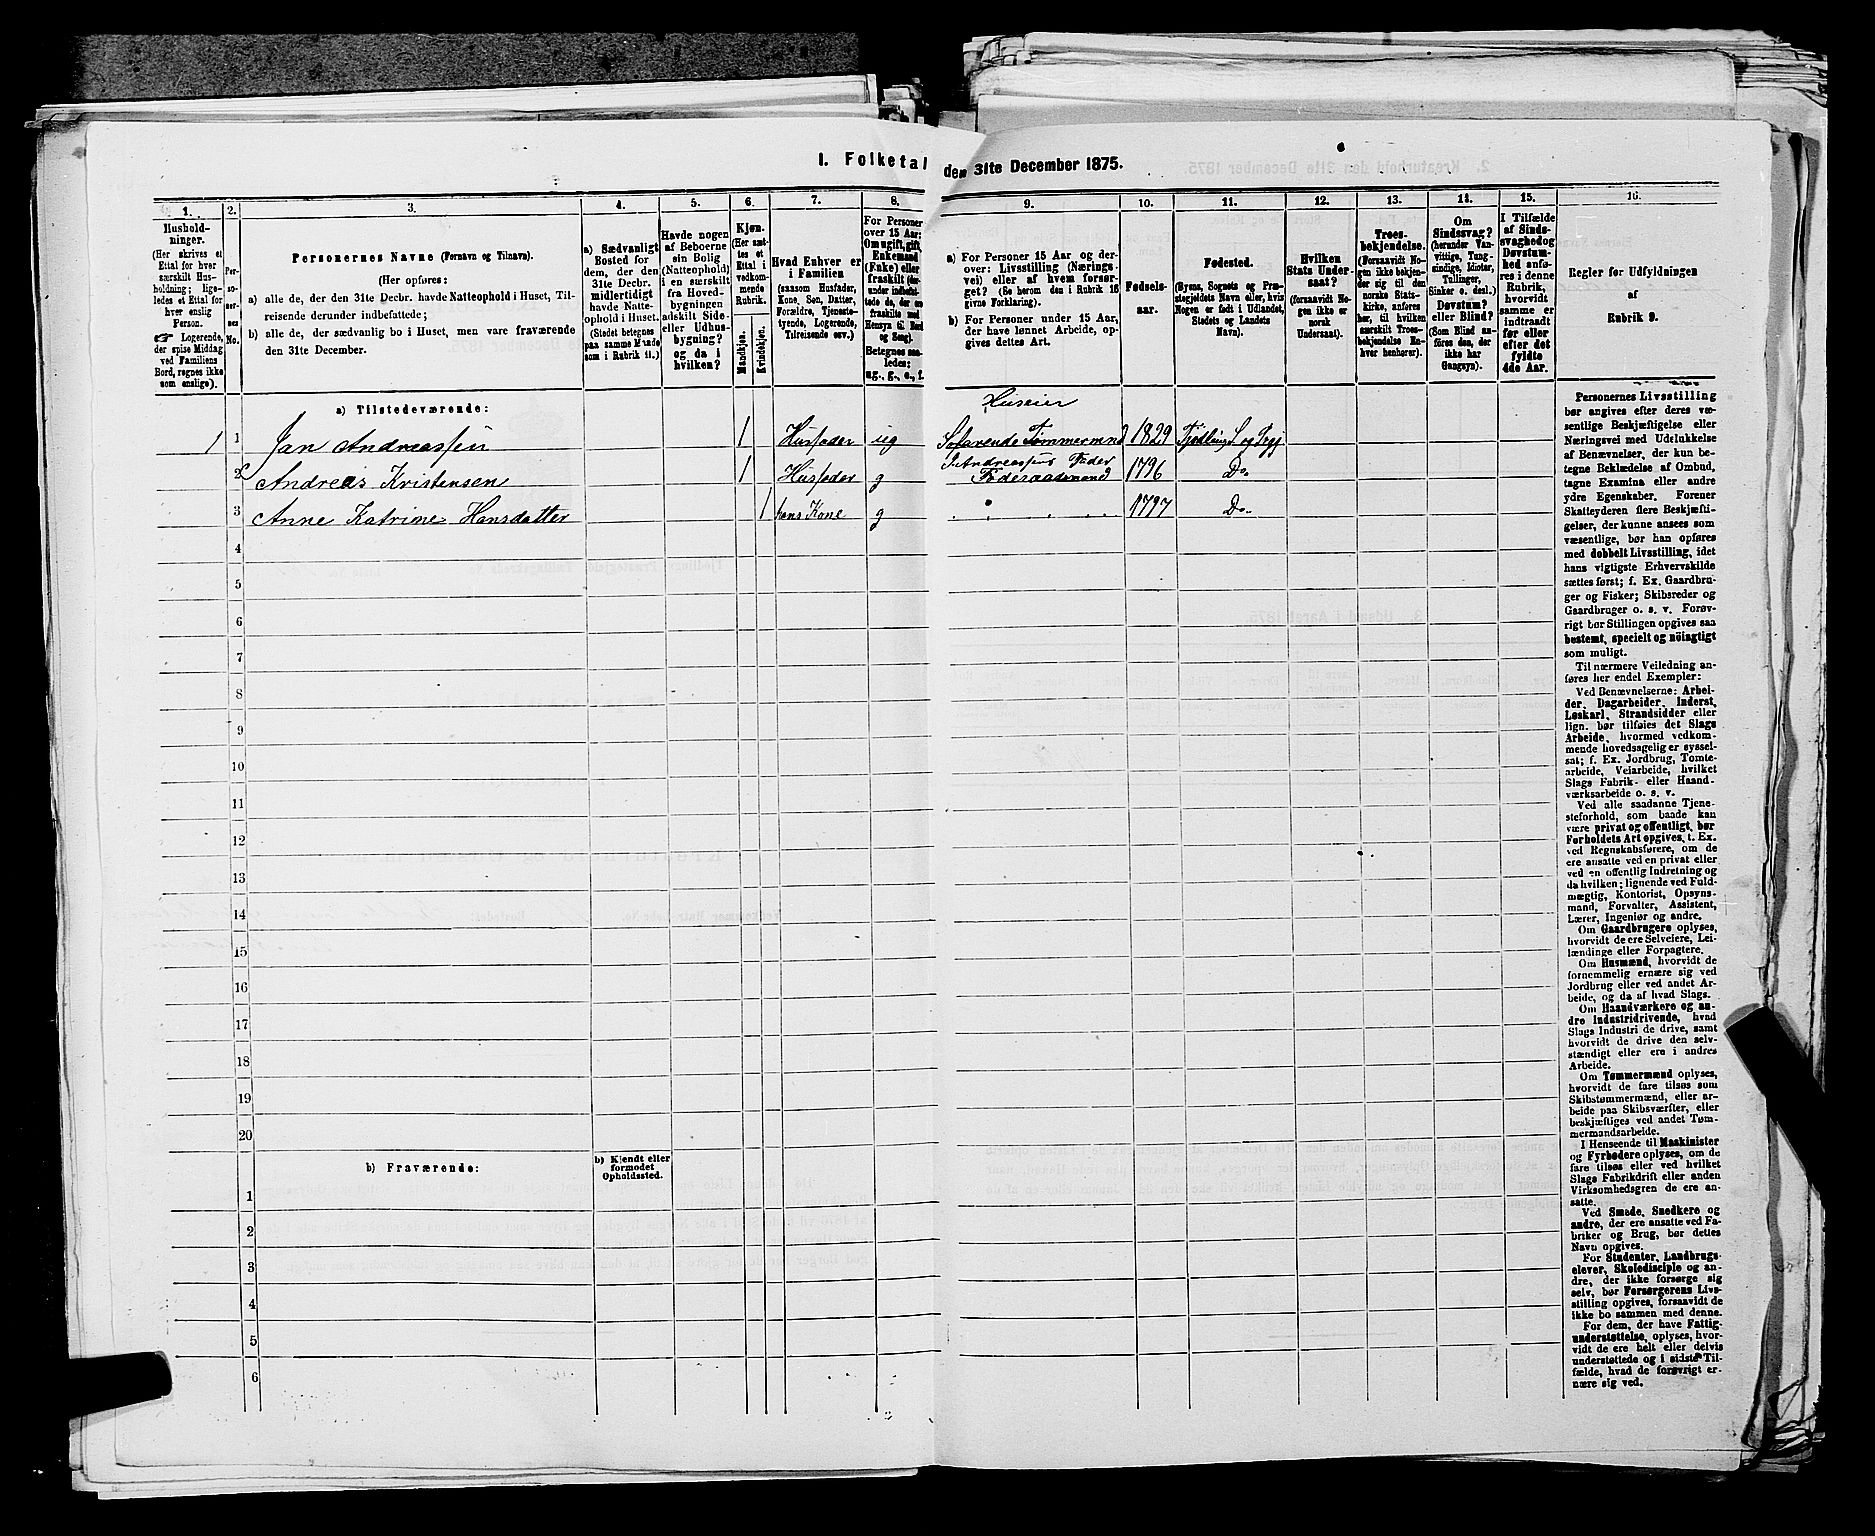 1. Folketal
den 31te December 1875.
1.
2.
3.
4.
5.
6.
7.
8.
9.
10.
11.
12.
13.
14.
15.
16.
Hushold-
ninger.
(Her skrives et
Ettal for hver
særskilt Hus-
holdning; lige-
ledes et Ettal for
hver enslig
Person.
☞ Logerende,
der spise Middag
ved Familiens
Bord, regnes ikke
som enslige).
Per-
so-
ner-
nes
No.
Personernes Navne (Fornavn og Tilnavn).
(Her opføres:
a) alle de, der den 31te Decbr. havde Natteophold i Huset, Til-
reisende derunder indbefattede;
b) alle de, der sædvanlig bo i Huset, men vare fraværende
den 31te December.
a) Sædvanligt
Bosted for
dem, der den
31te Decbr.
midlertidigt
havde Natte-
ophold i Huset.
(Stedet betegnes
paa samme Maade
som i Rubrik 11.)
Havde nogen
af Beboerne
sin Bolig
(Natteophold)
i en særskilt
fra Hoved-
bygningen
adskilt Side-
eller Udhus-
bygning?
og da i
hvilken?
Kjøn.
(Her sæt-
tes et
Ettal i
vedkom-
mende
Rubrik.
Mandkjøn.
Kvindekjøn.
Hvad Enhver er
i Familien
(saasom Husfader,
Kone, Søn, Datter,
Forældre, Tjeneste-
tyende, Logerende,
Tilreisende osv.)
For Personer
over 15 Aar:
Om ugift, gift,
Enkemand
(Enke) eller
fraskilt (der-
under indbefat-
tede de, der ere
fraskilte med
Hensyn til Bord
og Seng).
Betegnes saa-
ledes:
ug., g., e., f.
a) For Personer 15 Aar og der-
over: Livsstilling (Nærings-
vei) eller af hvem forsør-
get? (Se herom den i Rubrik 16
givne Forklaring).
b) For Personer under 15 Aar,
der have lønnet Arbeide, op-
gives dettes Art.
Fødsels-
aar.
Fødested.
(Byens, Sognets og Præ-
stegjeldets Navn eller, hvis
Nogen er født i Udlandet,
Stedets og Landets
Navn).
Hvilken
Stats Under-
saat?
(forsaavidt No-
gen ikke er
norsk
Undersaat).
Troes-
bekjendelse.
(Forsaavidt No-
gen ikke bekjen-
der sig til den
norske Stats-
kirke, anføres
her, til hvilken
særskilt Troes-
bekjendelse En-
hver henhører).
Om
Sindssvag?
(herunder Van-
vittige, Tung-
sindige, Idioter,
Tullinger,
Sinker o. desl.)
Døvstum?
eller Blind?
(Som Blind an-
føres den, der
ikke har
Gangsyn).
I Tilfælde
af Sinds-
svaghed og
Døvstum-
hed anføres
i denne
Rubrik,
hvorvidt
samme er
indtraadt
før eller
efter det
fyldte
4de Aar.
Regler for Udfyldningen
af
Rubrik 9.
a) Tilstedeværende:
Huseier
1 1 Jan Andreassen 1 Husfader ug Tømmermand 1829
2 Andreas Kristensen 1 Husfader g J. Andreassens Fader Føderaadsmand 1796 Do
3 Anne Katrine Hansdatter 1 hans Kone g 1797 Do
4
5
6
7
8
9
10
11
12
13
14
15
16
17
18
19
20
b) Fraværende:
b) Kjendt eller
formodet
Opholdssted.
1
2
3
4
5
6
Personernes Livsstilling
bør angives efter deres væ-
sentlige Beskjæftigelse eller
Næringsvei med Udelukkelse
af Benævnelser, der kun be-
tegne Beklædelse af Ombud,
tagne Examina eller andre
ydre Egenskaber. Forener
Skatteyderen flere Beskjæfti-
gelser, der kunne ansees som
væsentlige, bør han opføres
med dobbelt Livsstilling, idet
hans vigtigste Erhvervskilde
sættes først; f. Ex. Gaardbru-
ger og Fisker; Skibsreder og
Gaardbruger o. s. v. Forøv-
rigt bør Stillingen opgives saa
bestemt, specielt og nöiagtigt
som muligt.
Til nærmere Veiledning an-
føres her endel Exempler:
Ved Benævnelserne: Arbei-
der, Dagarbeider, Inderst,
Løskarl, Strandsidder eller
lign. bør tilføies det Slags
Arbeide, hvormed vedkom-
mende hovedsagelig er syssel-
sat; f. Ex. Jordbrug, Tomte-
arbeide, Veiarbeide, hvilket
Slags Fabrik- eller Haand-
værksarbeide o. s. v.
Ved alle saadanne Tjene-
steforhold, som baade kan
være privat og offentligt, bør
Forholdets Art opgives, t. Ex.
ved Regnskabsførere, om de
ere ansatte ved en privat eller
ved en offentlig Indretning og
da hvilken; lignende ved Fuld-
mægtig, Kontorist, Opsyns-
mand, Forvalter, Assistent,
Lærer, Ingeniør og andre.
Om Gaardbrugere oplyses,
hvorvidt de ere Selveiere, Lei-
lændinge eller Forpagtere.
Om Husmænd, hvorvidt de
fornemmelig ernære sig ved
Jordbrug eller ved andet Ar-
beide, og da af hvad Slags.
Om Haandværkere og an-
dre Industridrivende, hvad
Slags Industri de drive, samt
hvorvidt de drive den selv-
stændigt eller ere i andres
Arbeide.
Om Tømmermænd oplyses,
hvorvidt de fare tilsøs som
Skibstømmermænd, eller ar-
beide paa Skibsværfter, eller
beskjæftiges ved andet Tøm-
mermandsarbeide.
I Henseende til Maskinister
og Fyrbødere oplyses, om de
fare tilsøs eller ved hvilket
Slags Fabrikdrift eller anden
Virksomhedsgren de ere an-
satte.
Ved Smede, Snedkere og
andre, der ere ansatte ved Fa-
briker og Brug, bør dettes
Navn opgives.
For Studenter, Landbrugs-
elever, Skoledisciple og an-
dre, der ikke forsørge sig
selv, bør Forsørgerens Livs-
stilling opgives, forsaavidt de
ikke bo sammen med denne.
For dem, der have Fattig-
understøttelse, oplyses, hvor-
vidt de ere helt eller delvis
understøttede og i sidste Til-
fælde, hvad de forøvrigt er-
nære sig ved.